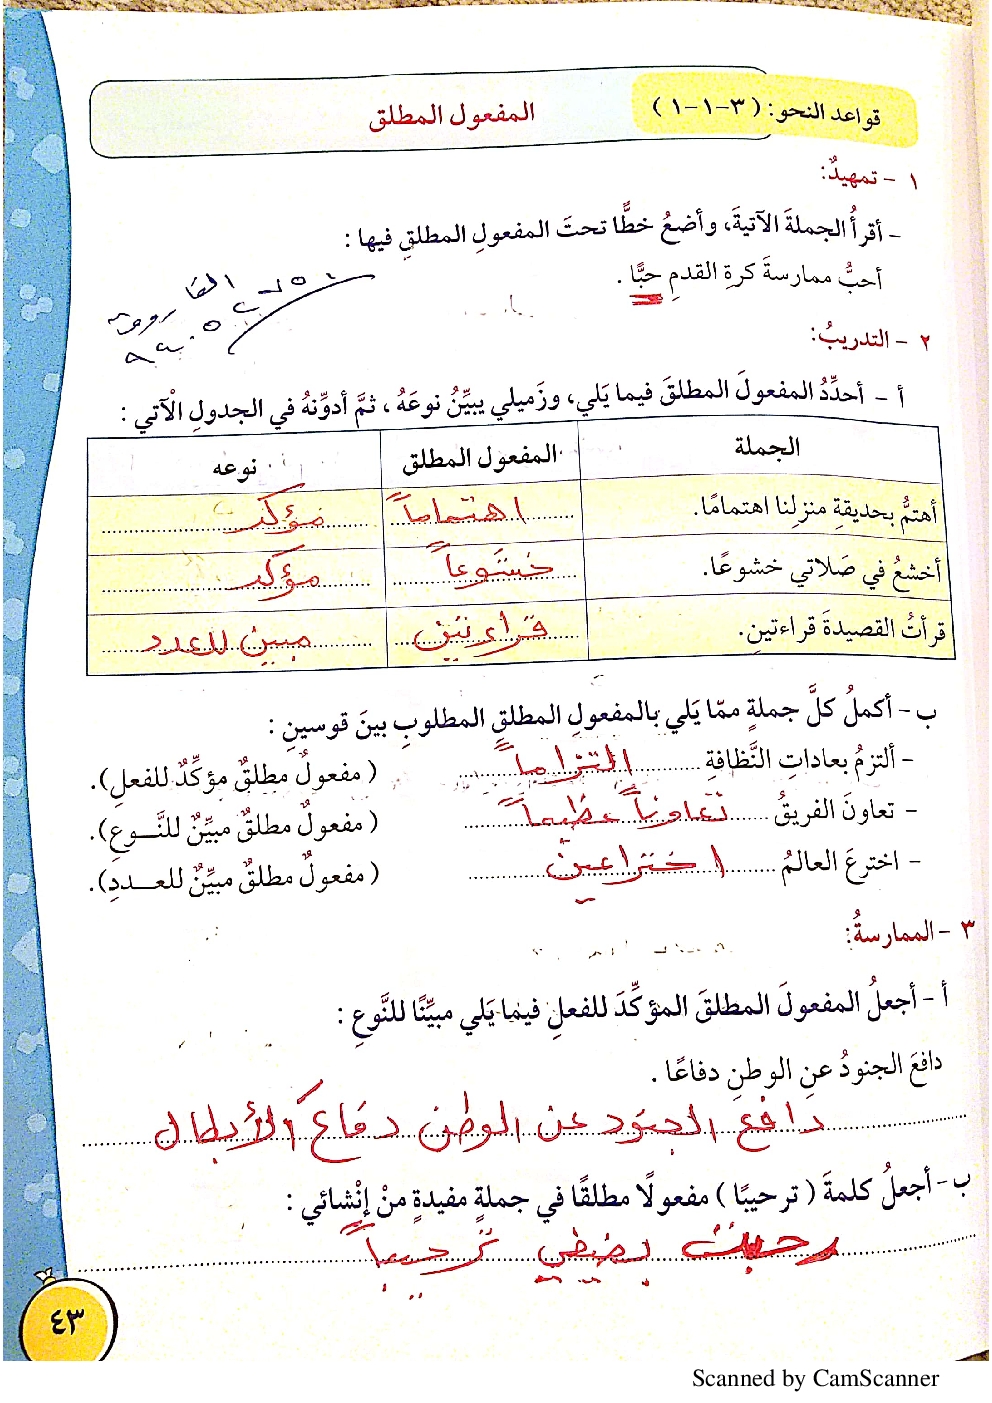 قواعد النحو: (٣-١-١)
المفعول المطلق
١ - تمهيدٌ:
- أقرأُ الجملةَ الآتيةَ، وأضعُ خطًّا تحتَ المفعولِ المطلقِ فيها :
أحبُّ ممارسةَ كرةِ القدمِ حبًّا .
٢ - التدريبُ:
أ - أحدِّدُ المفعولَ المطلقَ فيما يَلي، وزَميلي يبيِّنُ نوعَهُ ، ثمَّ أدوِّنهُ في الجدولِ الْآتي :
الجملة المفعول المطلق نوعه
أهتمُّ بحديقةِ منزلِنا اهتمامًا. اهتماماً مؤكد
أخشعُ في صَلاتي خشوعًا. خشوعاً مؤكد
قرأتُ القصيدةَ قراءتينِ. قراءتين مبين للعدد
ب - أكملُ كلَّ جملةٍ ممّا يَلي بالمفعولِ المطلقِ المطلوبِ بينَ قوسينِ :
- ألتزمُ بعاداتِ النَّظافةِ التزاماً ( مفعولٌ مطلقٌ مؤكِّدٌ للفعلِ).
- تعاونَ الفريقُ تعاوناً عظيماً ( مفعولٌ مطلقٌ مبيِّنٌ للنَّوعِ).
- اخترعَ العالمُ اختراعين ( مفعولٌ مطلقٌ مبيِّنٌ للعددِ).
٣ - الممارسةُ:
أ - أجعلُ المفعولَ المطلقَ المؤكِّدَ للفعلِ فيما يَلي مبيِّنًا للنَّوعِ :
دافعَ الجنودُ عنِ الوطنِ دفاعًا .
دافع الجنود عن الوطن دفاعَ الأبطال
ب - أجعلُ كلمةَ ( ترحيبًا ) مفعولًا مطلقًا في جملةٍ مفيدةٍ منْ إنْشائي :
رحبت بضيفي ترحيباً
٤٣
Scanned by CamScanner